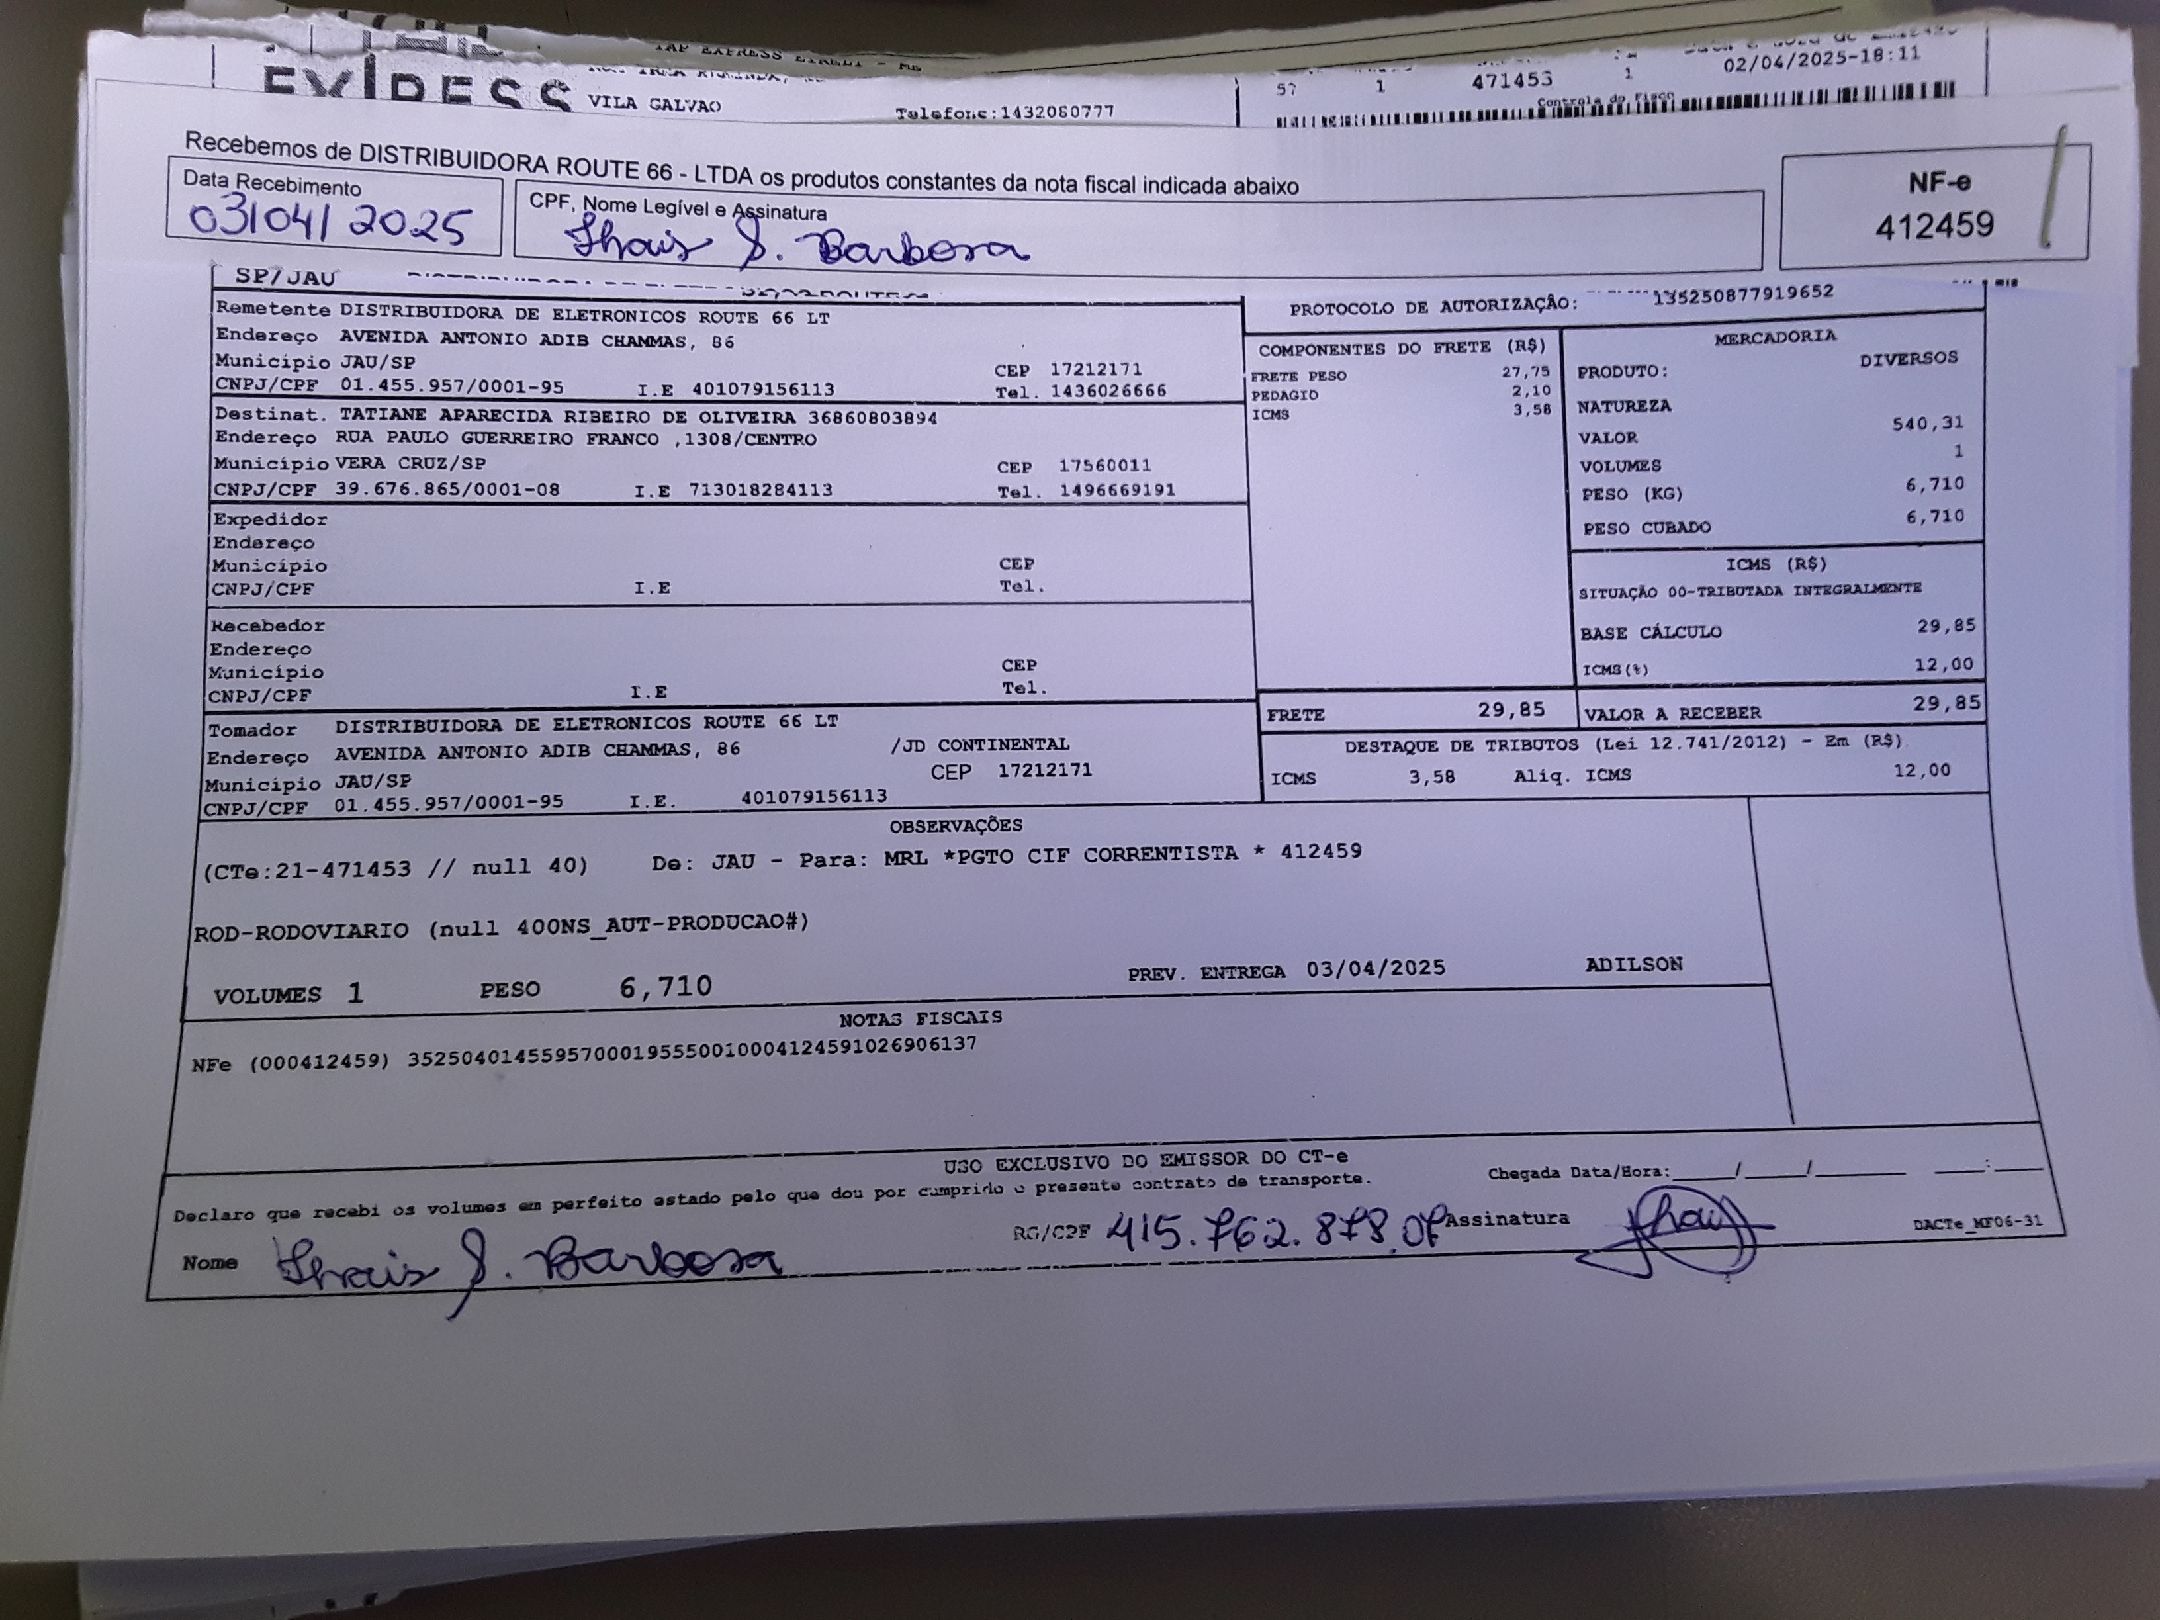 EXPRESS
TAP EXPRESS EIRELI - ME
VILA GALVAO
Telefone:1432080777
57 1 471453 1 02/04/2025-18:11
Controle do Fisco
Recebemos de DISTRIBUIDORA ROUTE 66 - LTDA os produtos constantes da nota fiscal indicada abaixo
Data Recebimento
03/04/2025
CPF, Nome Legível e Assinatura
Thais S. Barbosa
NF-e
412459
SP/JAU
PROTOCOLO DE AUTORIZAÇÃO: 135250877919652
Remetente DISTRIBUIDORA DE ELETRONICOS ROUTE 66 LT
Endereço AVENIDA ANTONIO ADIB CHAMMAS, 86
Município JAU/SP CEP 17212171
CNPJ/CPF 01.455.957/0001-95 I.E 401079156113 Tel. 1436026666
Destinat. TATIANE APARECIDA RIBEIRO DE OLIVEIRA 36860803894
Endereço RUA PAULO GUERREIRO FRANCO ,1308/CENTRO
Município VERA CRUZ/SP CEP 17560011
CNPJ/CPF 39.676.865/0001-08 I.E 713018284113 Tel. 1496669191
Expedidor
Endereço
Município CEP
CNPJ/CPF I.E Tel.
Recebedor
Endereço
Município CEP
CNPJ/CPF I.E Tel.
Tomador DISTRIBUIDORA DE ELETRONICOS ROUTE 66 LT
Endereço AVENIDA ANTONIO ADIB CHAMMAS, 86 /JD CONTINENTAL
Município JAU/SP CEP 17212171
CNPJ/CPF 01.455.957/0001-95 I.E. 401079156113
COMPONENTES DO FRETE (R$)
FRETE PESO 27,75
PEDAGIO 2,10
ICMS 3,58
MERCADORIA
PRODUTO: DIVERSOS
NATUREZA
VALOR 540,31
VOLUMES 1
PESO (KG) 6,710
PESO CUBADO 6,710
ICMS (R$)
SITUAÇÃO 00-TRIBUTADA INTEGRALMENTE
BASE CÁLCULO 29,85
ICMS(%) 12,00
FRETE 29,85 VALOR A RECEBER 29,85
DESTAQUE DE TRIBUTOS (Lei 12.741/2012) - Em (R$)
ICMS 3,58 Aliq. ICMS 12,00
OBSERVAÇÕES
(CTe:21-471453 // null 40) De: JAU - Para: MRL *PGTO CIF CORRENTISTA * 412459
ROD-RODOVIARIO (null 400NS_AUT-PRODUCAO#)
VOLUMES 1 PESO 6,710 PREV. ENTREGA 03/04/2025 ADILSON
NOTAS FISCAIS
NFe (000412459) 35250401455957000195550010004124591026906137
USO EXCLUSIVO DO EMISSOR DO CT-e
Declaro que recebi os volumes em perfeito estado pelo que dou por cumprido o presente contrato de transporte.
Chegada Data/Hora:_____/_____/________ ____:____
Nome Thais S. Barbosa RG/CPF 415.762.878.07 Assinatura Thais
DACTe_MF06-31